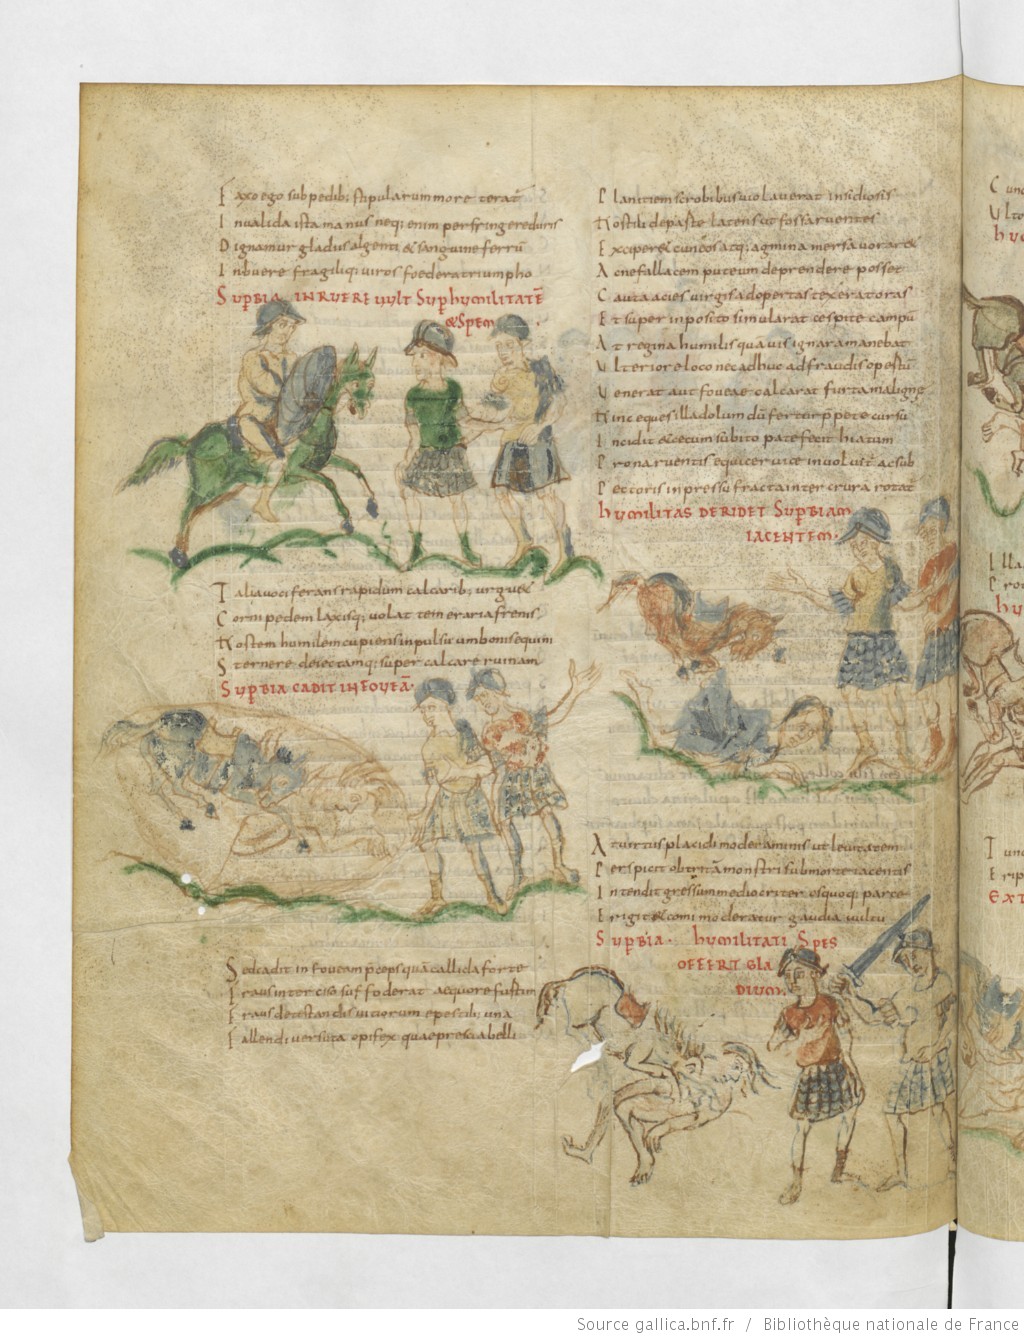 Faxo ego sub pedib; stipularum more terat̃
Inualida ista manus neq; enim perfringere duris
Dignamur gladiis algenti & sanguine ferrũ
Inbuere fragiliq; uiros foedera triumpho
Supbia inruere uult sup humilitatẽ
& spem
Talia uociferans rapidum calcarib; urgu&
Cornipedem laxisq; uolat temeraria frenis
Hostem humilem cupiens inpulsu umbonis equini
Sternere deiectamq; super calcare ruinam
Supbia cadit in foueã.
Sed cadit in foueam p̃ceps quã callida forte
Fraus inter ciso suffoderat aequore furtim
Fraus detestandis uitiorum e pestib; una
Fallendi uersuta opifex quae prescia belli
Planitiem scrobibus uiolauerat insidiosis
Hostili de paste latens ut fossa ruentes
Exciper& cuneos atq; agmina mersa uorar&
Ac ne fallacem puteum deprendere posset
Cauta acies uirgis adopertas texerat oras
Et super inposito simularat cespite campũ
At regina humilis quãuis ignara manebat
Ulteriore loco nec adhuc ad fraudis opestũ
Venerat aut foueae calcarat furta maligne
Hinc eques illa dolum dũ fertur p̃pete cursu
Incidit & cecum subito patefecit hiatum
Prona ruentis equi ceruice inuoluit̃ ac sub
Pectoris inpressu fracta inter crura rotat̃
humilitas deridet supbiam
iacentem.
At uirtus placidi moderaminis ut leuitatem
Perspicit obtritã monstri sub morte iacentis
Intendit gressum mediocriter os quoq; parce
Erigit & comi moderatur gaudia uultu
Supbia. humilitati spes
offert gla
dium.
Source gallica.bnf.fr / Bibliothèque nationale de France